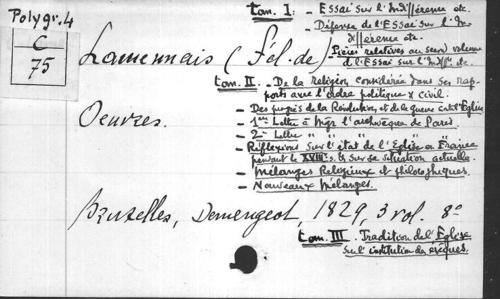 Polygr. 4
C
75
Lamennais (Fél. de)
Oeuvres.
Bruxelles, Demengeot, 1829, 3 vol. 8°
tom. I : - Essai sur l'Indifférence etc.
- Défense de l'Essai sur l'In-
différence etc.
- Pièces relatives au second volume
de l'Essai sur l'Indiff. etc.
tom. II. - De la religion considérée dans ses rap-
ports avec l'ordre politique et civil.
- Des progrès de la Révolution, et de la guerre contre l'Église
- 1ère Lettre à Mgr l'archevêque de Paris.
- 2me Lettre " " " " "
- Réflexions sur l'état de l'Église en France
pendant le XVIIIe s. et sur sa situation actuelle.
- Mélanges Religieux et philosophiques.
- Nouveaux Mélanges.
tom. III. Tradition de l'Église
sur l'institution des évêques.